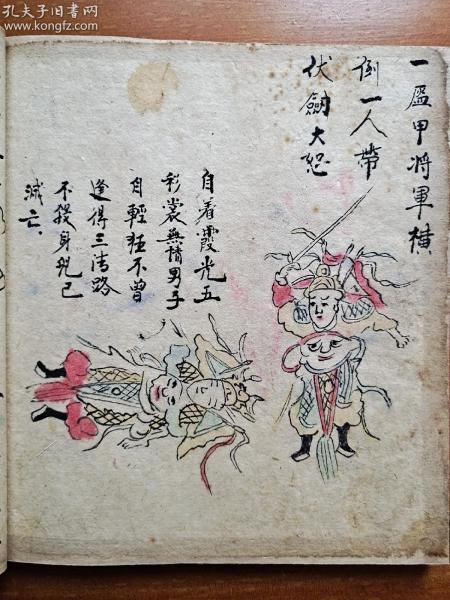 孔夫子旧书网
www.kongfz.com
一盔甲将軍橫
倒一人帶
伏劍大怒
自着霞光五
彩裳無情男子
自輕狂不曾
逢得三清路
不投身已
滅亡、